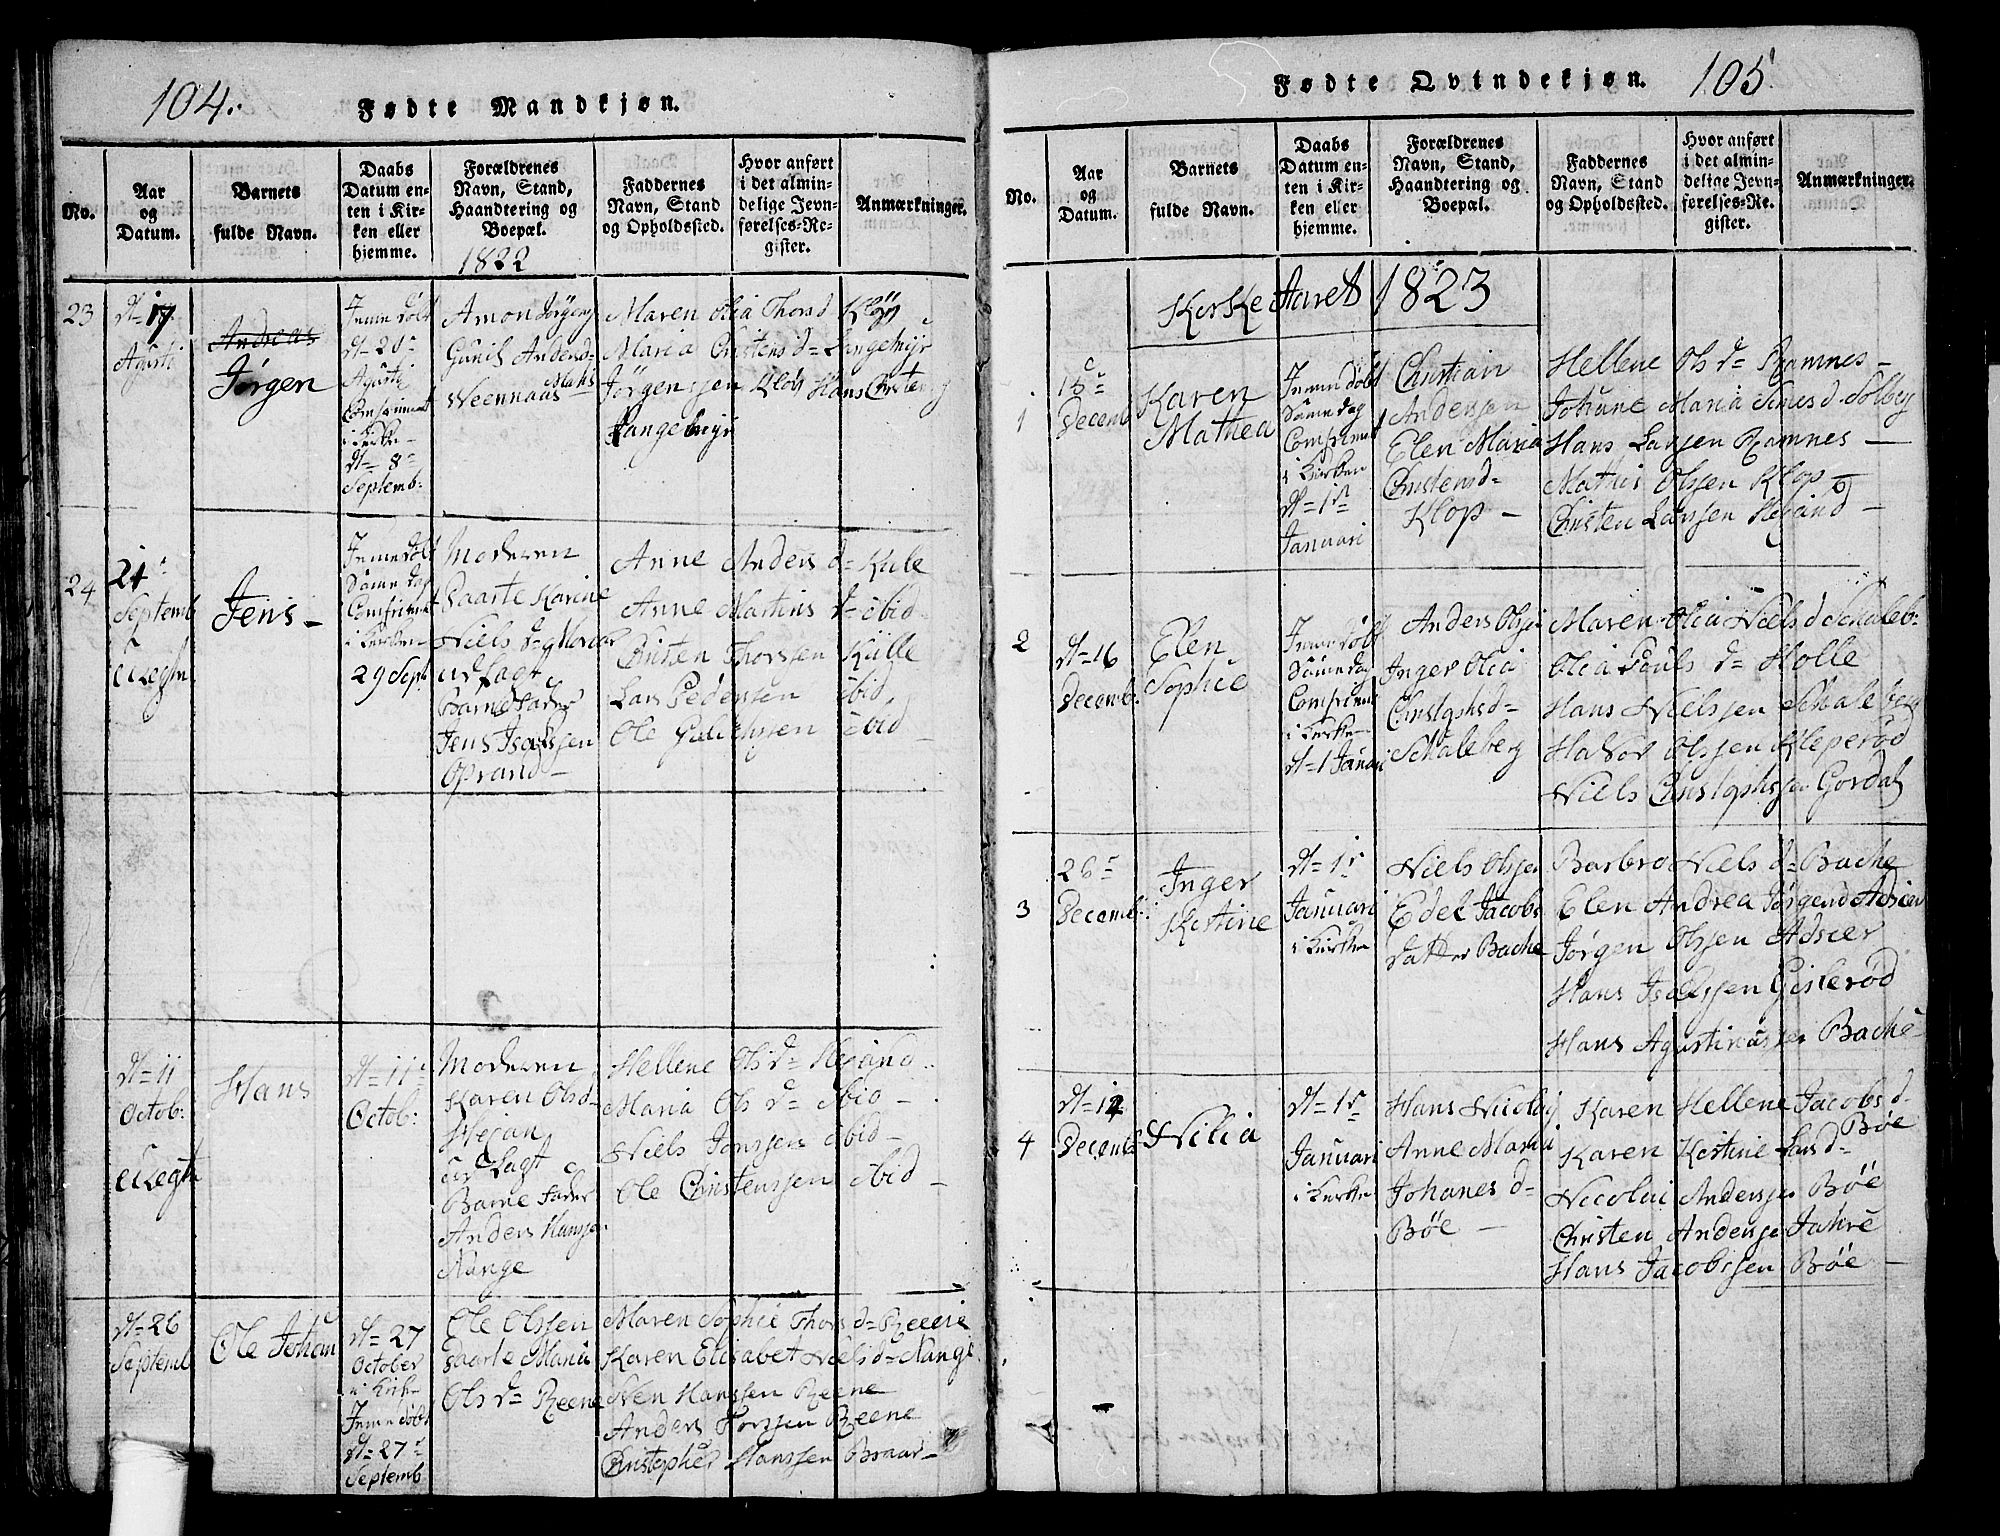 104.
Fødte Mandkjøn.
No.
Aar
og
Datum.
Barnets
fulde Navn.
Daabs
Datum en-
ten i Kir-
ken eller
hjemme.
Forældrenes
Navn, Stand,
Haandtering og
Boepæl.
Faddernes
Navn, Stand
og Opholdssted.
Hvor anført
i det almin-
delige Jevn-
førelses-Re-
gister.
Anmærkninger.
1822
23
d= 17
Agusti
Andreas
Jørgen
Jemedøbt
d= 20=
Agusti
Comfirmert
i Kirke-
d= 8=
Septemb:
Amon Jørgens
Gunil Andersd=
Weennaas
Maren Olia Thorsd Kløp
Maria Cristens d= Langemyr
Jørgenssen Kløp Hans Christens
Langemyr
24
21=
Septemb
Uegte
Jens -
Jemedøbt
Same dag
Comfirmert
i Kirken
29 Sept
Moderen
Daarte Karine
Niels d=
udlagt
Barne Fader
Jens Isakssen
Oprand -
Anne Anders d= Kule
Anne Martins d= ibid
Cristen Thorssen Külle
Lars Pedersen ibid
Ole ibid -
d= 11
Octob:
Uegte
Hans
d= 11=
Octob:
Moderen
Karen Olsd=
Hejan
udlagt
Barne Fader
Anders Hanssen
Nange
Hellene Ols d= Hejand
Maria Ols d= ibid -
Niels Jonssen ibid -
Ole Christenssen ibid -
d= 26
Septemb
Ole Johan
d= 27
October
i Kirke
Jemedøbt
d= 27=
Septemb
Ole Olssen
Daarte Maria
Ols d= Reene
Maren Sophie Thors d= Reene
Karen Elisabet Niels d= Nange
Hanssen Reene
Anders Torssen Reene
Christopher Hanssen Braar -
Fødte Qvindekjøn.
105.
No.
Aar
og
Datum.
Barnets
fulde Navn.
Daabs
Datum en-
ten i Kir-
ken eller
hjemme.
Forældrenes
Navn, Stand,
Haandtering og
Boepæl.
Faddernes
Navn, Stand
og Opholdssted.
Hvor anført
i det almin-
delige Jevn-
førelses-Re-
gister.
Anmærkninger.
Kerke Aaret 1823
1
15=
Decemb
Karen
Mathea
Jemedøbt
Same dag
Comfirmert
i Kirken
d= 1=
Januari
Christian
Anderssen
Elen Maria
Christensd=
Klop -
Hellene Ols d= Ramnes -
Johane Maria Simesd. Solberg
Hans Larssen Ramnes -
Mathis Olssen Klop -
Christen Larssen Hejand -
2
d= 16
Decemb:
Elen
Sophie
Jemedøbt
Same dag
Comfirmert
i Kirke
d= 1 Januari
Anders Olssen
Inger Olia
Christophsd=
Skaleberg
Maren Olia Niels d Skaleb:
Olia Pouls d= Holle
Hans Nielssen Skaleberg
Halvor Olssen Kleperød
Niels Christophssen Gordal
3
26=
Decemb:
Inger
Kestine
d= 1=
Januari
i Kirken
Niels Olssen
Edel Jacobs
datter Bache
Barbro Niels d= Bache
Elen Andrea Jørgensd Adsier
Jørgen Olssen Adseer
Hans Isakssen Geslerød
Hans Agustinussen Bache
4
d= 14
Decemb
Nilia
d= 1=
Januari
i Kirken
Hans Nicolaj
Anne Maria
Johanes d=
Bøe -
Karen Hellene Jacobsd.
Bøe
Karen Kestine Larsd=
Nicolai Anderssen Bøe
Christen Anderssen Jahre
Hans Jacobssen Bøe -